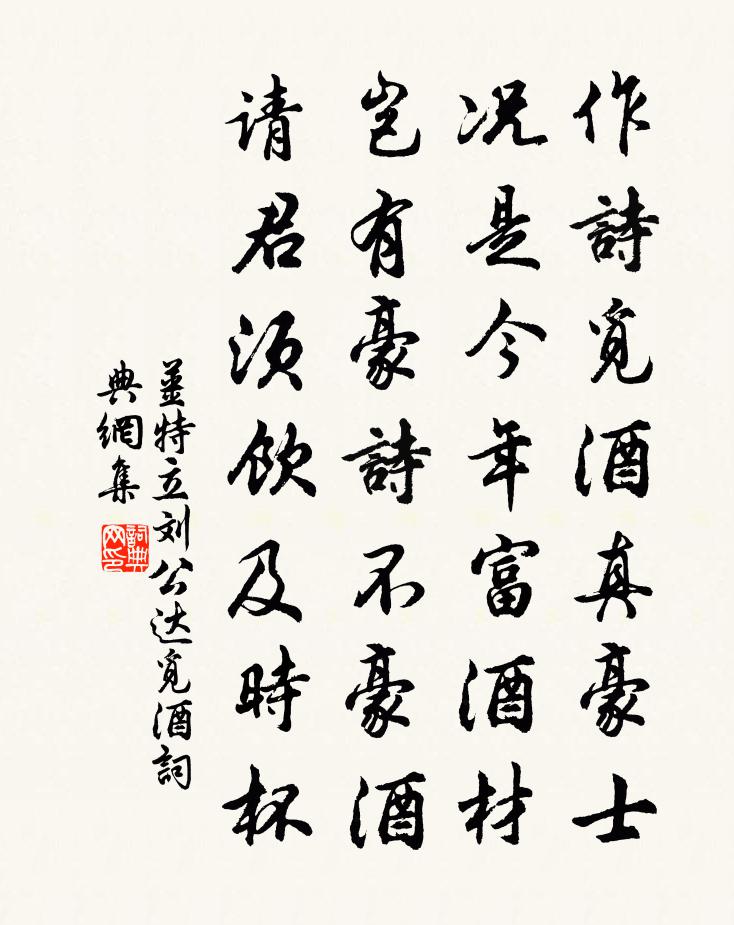 作詩覓酒真豪士
况是今年富酒材
岂有豪詩不豪酒
请君须飲及時杯
薑特立刘公达覓酒詞
典網集
詞典
网印